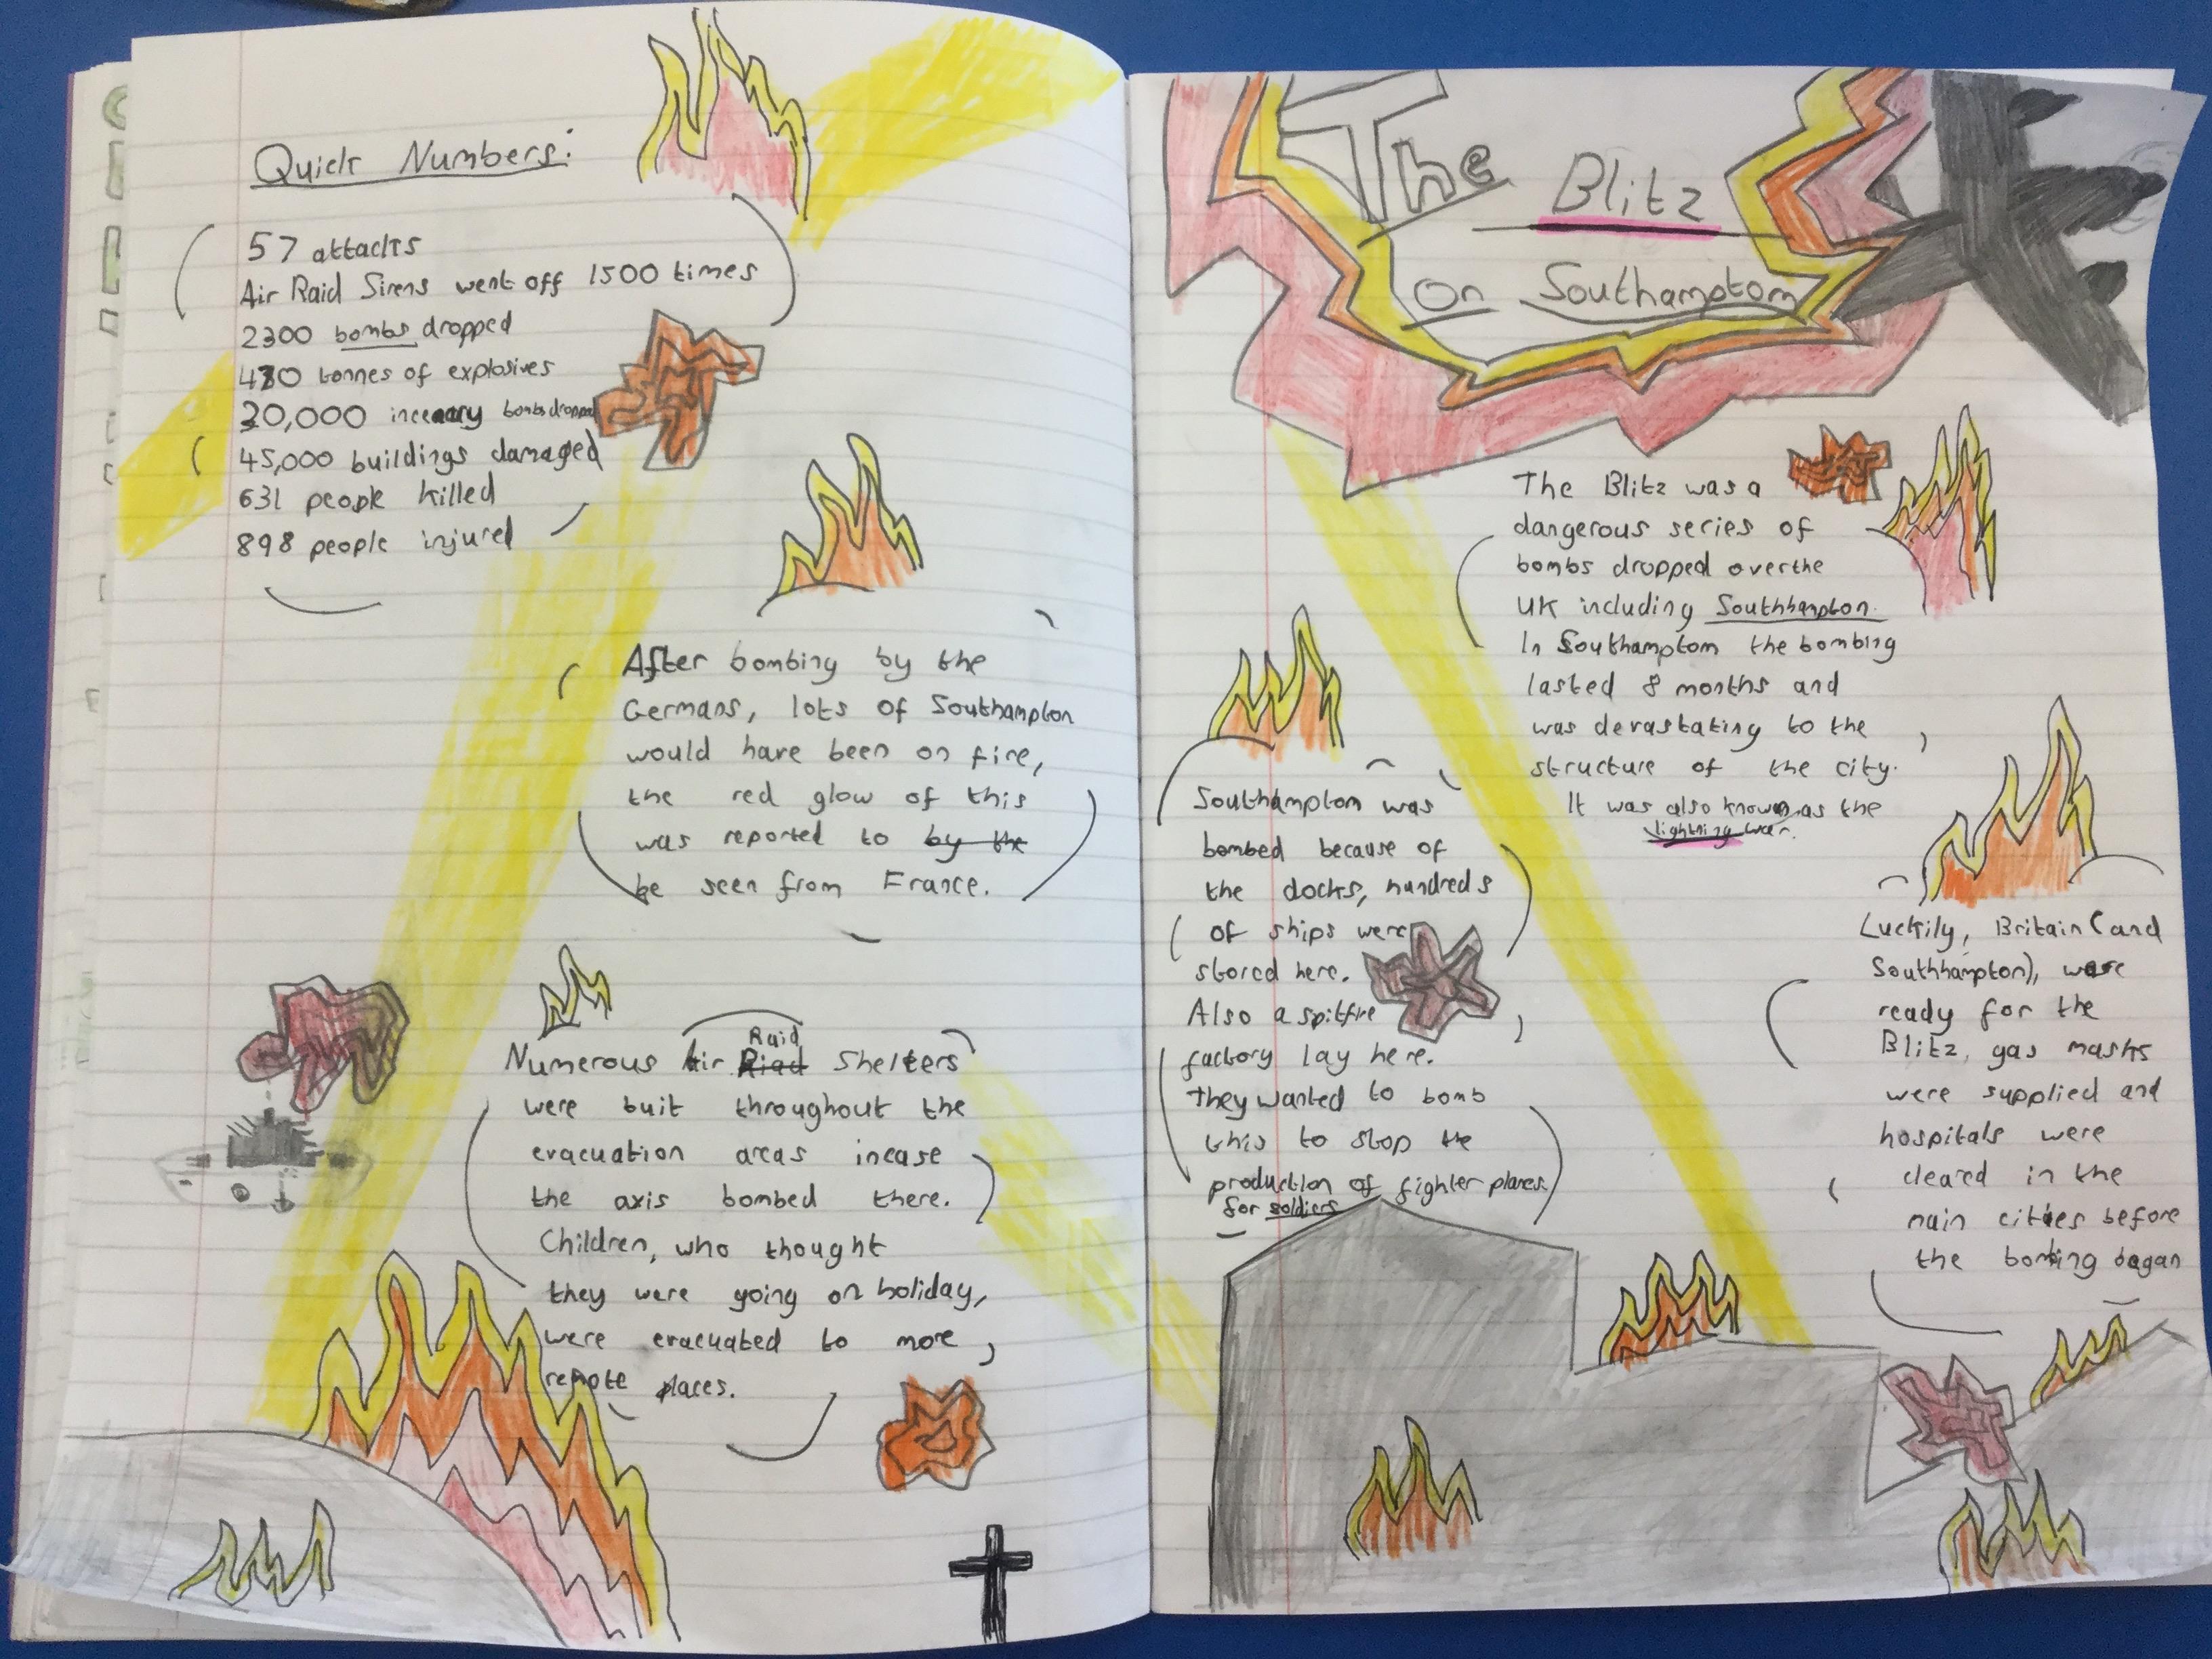 Quick Numbers:
57 attacks
Air Raid Sirens went off 1500 times
2300 bombs dropped
tonnes of explosives
bombs dropped
45,000 buildings damaged
631 people killed
898 people injured
After bombing by the
Germans, lots of Southampton
would have been on fire,
the red glow of this
was reported to by the
be seen from France.
Raid
Numerous Air Riad Shelters
were buit throughout the
evacuation areas incase
the axis bombed there.
Children, who thought
they were going on holiday,
were evacuated to more
remote places.
The
Blitz
On Southamptom
The Blitz was a
dangerous series of
bombs dropped over the
UK including Southhampton.
In Southamptom the bombing
lasted 8 months and
was devastating to the
structure of the city.
It was also known as the
lightning war.
Southamptom was
bombed because of
the docks, hundreds
of ships were
stored here.
Also a spitfire
factory lay here.
They wanted to bomb
this to stop the
production of fighter planes.
for soldiers
Luckily, Britain (and
Southhampton), were
ready for the
Blitz, gas masks
were supplied and
hospitals were
cleared in the
main cities before
the bombing began